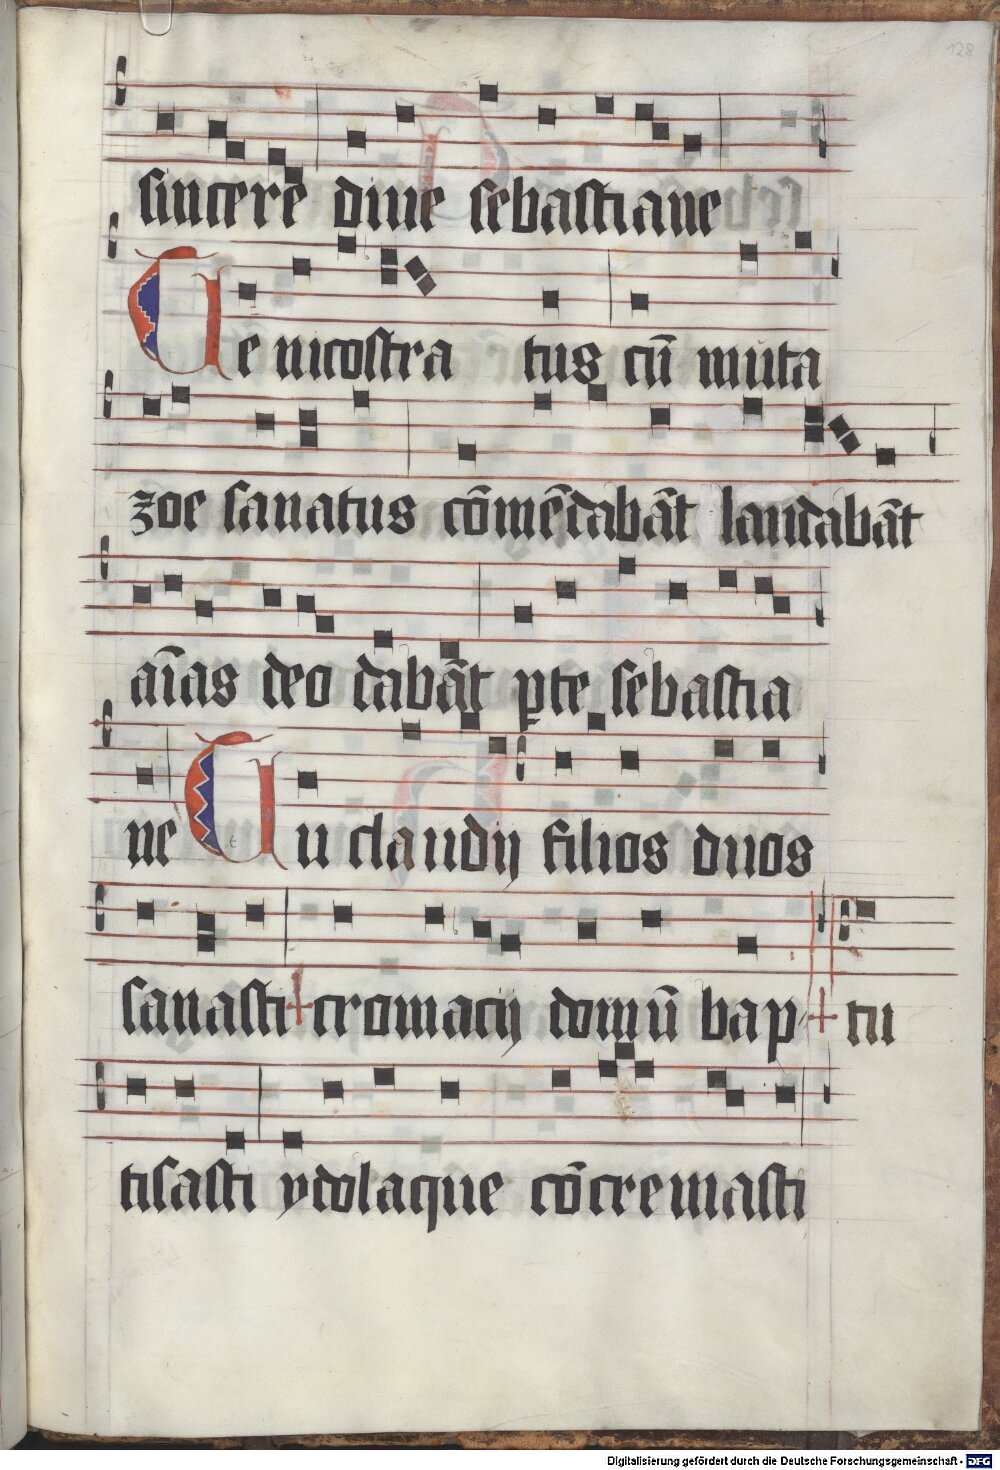 128
sincere diue sebastiane
Te nicostra tus cū muta
zoe sanatus cōmēdabāt laudabāt
aīas deo dabāt ꝑte sebastia
ne Tu claudij filios duos
sanasti + cromacij domū bap + tu
tisasti ydolaque cōcremasti
Digitalisierung gefördert durch die Deutsche Forschungsgemeinschaft - DFG